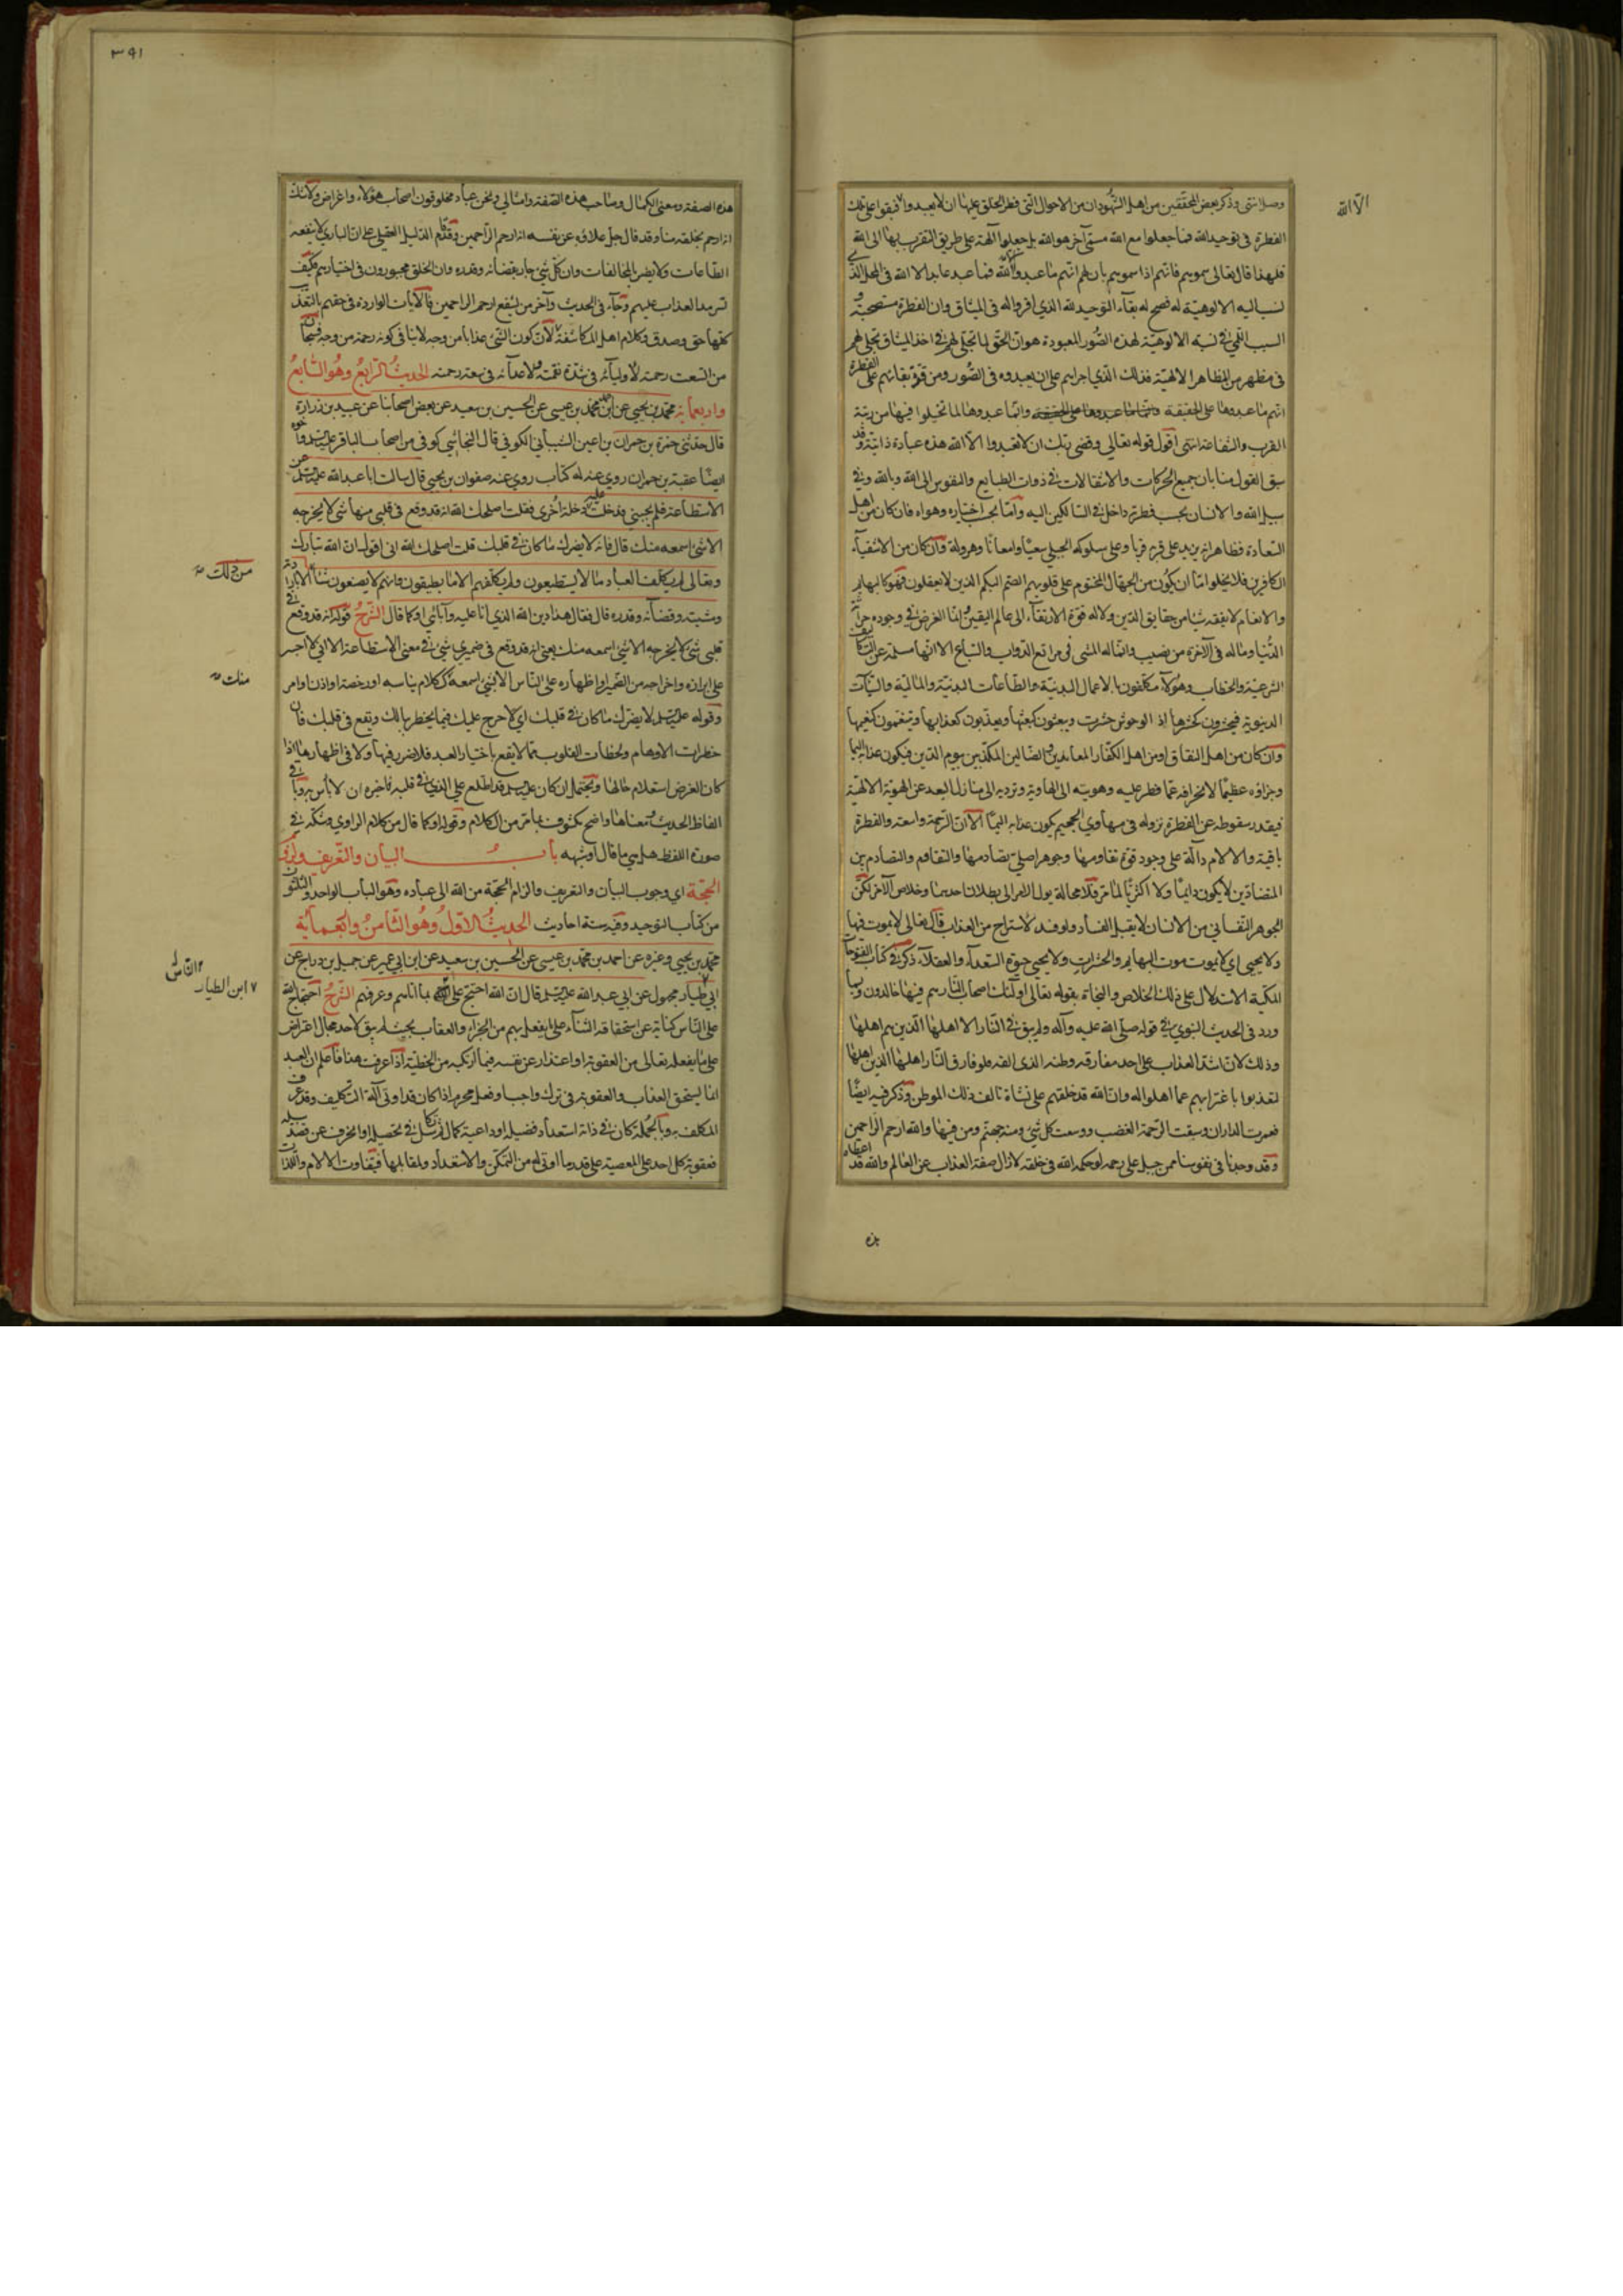 وصل انتهى وذكر بعض المحققين من اهل الشهود ان من الاحوال التي فطر الخلق عليها ان لا يعبدوا فبقوا على تلك
الا الله
الفطرة في توحيد الله فما جعلوا مع الله مسمى آخر هو الله بل جعلوا آلهة على طريق التقرب بها الى الله
فلهذا قال تعالى سموهم فانهم اذا سموهم بان لهم انهم ما عبدوا الا الله فما عبد عابد الا الله في المحل الذي
نسب اليه الالوهية له فصح له بقاء التوحيد لله الذي اقروا له في الميثاق وان الفطرة مستصحبة
السبب اللمي في نسبة الالوهية لهذه الصور المعبودة هو ان الحق لما تجلى لهم في اخذ الميثاق تجلى لهم
في مظهر من المظاهر الالهية فذلك الذي اجراهم على ان يعبدوه في الصور ومن قوة بقائهم على الفطرة
انهم ما عبدوها على الحقيقة وانما عبدوها لما تخيلوا فيها من رتبة
القرب والشفاعة انتهى اقول قوله تعالى وقضى ربك ان لا تعبدوا الا الله هذه عبادة ذاتية وقد
سبق القول منا بان جميع الحركات والانتقالات في ذوات الطبايع والنفوس الى الله وبالله وفي
سبيل الله والانسان بحسب فطرته داخل في السالكين اليه واما بحسب اختياره وهواه فان كان من اهل
السعادة فظاهر انه يزيد على قربه قربا وعلى سلوكه الجبلي سعيا وامعانا وهرولة وان كان من الاشقياء
الكافرين فلا يخلوا اما ان يكون من الجهال المختوم على قلوبهم الصم البكم الذين لا يعقلون فهو كالبهايم
والانعام لا يفقه شيئا من حقايق الدين ولا له قوة الارتقاء الى عالم اليقين وانما الغرض في وجوده حراثة
الدنيا وماله في الآخرة من نصيب وانما له المشي في مراتع الدواب والسباع الا انها مسلمة عن التكاليف
الشرعية والخطاب وهؤلاء مكلفون بالاعمال البدنية والطاعات البدنية والمالية والنيات
الدنيوية فيحشرون كحشرها اذ الوحوش حشرت ويبعثون كبعثها ويعذبون كعذابها وينعمون كنعيمها
وان كان من اهل النفاق او من اهل الكفار المعاندين والضالين المكذبين بيوم الدين فيكون عذابه اليما
وجزاؤه عظيما لانحرافه عما فطر عليه وهويه الى الهاوية وترديه الى منازل البعد عن الهوية الالهية
فبقدر سقوطه عن الفطرة نزوله في مهاوي الجحيم يكون عذابه اليما الا ان الرحمة واسعة والفطرة
باقية والالام دالة على وجود قوة تقاومها وجوهر اصلي يضادمها والتقاوم والتصادم بين
المتضادين لا يكون دايما ولا اكثريا لما مر فلا محالة يول الامر الى بطلان احدهما وخلاص الآخر لكن
الجوهر النفساني من الانسان لا يقبل الفساد ولو فسد لاستراح من العذاب قال تعالى لا يموت فيها
ولا يحيى اي لا يموت موت البهايم والحشرات ولا يحيى حيوة السعداء والعقلاء ذكر في كتاب الفتوحات
المكية الاستدلال على ذلك الخلاص والنجاة بقوله تعالى اولئك اصحاب النار هم فيها خالدون وبما
ورد في الحديث النبوي في قوله صلى الله عليه وآله ولم يبق في النار الا اهلها الذين هم اهلها
وذلك لان اشد العذاب على احد مفارقة وطنه الذي الفه فلو فارق النار اهلها الذين اهلها
لتعذبوا باغترابهم عما اهلوا له وان الله قد خلقهم على نشاة تالف ذلك الموطن وذكر فيه ايضا
فعمرت الداران وسبقت الرحمة الغضب ووسعت كل شيء ومنه جهنم ومن فيها والله ارحم الراحمين
وقد وجدنا في نفوسنا ممن جبل على رحمة لو حكمه الله في خلقه لازال صفة العذاب عن العالم والله قد اعطاه
هذه
٣٩١
هذه الصفة ومعنى الكمال وصاحب هذه الصفة وامثالي ونحن عباد مخلوقون اصحاب اهواء واغراض ولا شك
انه ارحم بخلقه منا وقد قال جل علاؤه عن نفسه انه ارحم الراحمين وقد قام الدليل العقلي على ان الباري لا ينفعه
الطاعات ولا يضره المخالفات وان كل شيء جار بقضائه وقدره وان الخلق مجبورون في اختيارهم فكيف
تسرمد العذاب عليهم وجاء في الحديث وآخر من يشفع ارحم الراحمين فالآيات الواردة في حقهم بالتعذيب
كلها حق وصدق وكلام اهل المكاشفة لان كون الشيء عذابا من وجه لا ينافي كونه رحمة من وجه فسبحان
من اتسعت رحمته لاوليائه في شدة نقمته ولاعدائه في سعة رحمته الحديث الرابع وهو السابع
واربعمائة محمد بن يحيى عن احمد بن محمد بن عيسى عن الحسين بن سعيد عن بعض اصحابنا عن عبيد بن زرارة
قال حدثني حمزة بن حمران بن اعين الشيباني الكوفي قال النجاشي كوفي من اصحاب الباقر عليه السلم واخوه
ايضا عقبة بن حمران روى عنه له كتاب روى عنه صفوان بن يحيى قال سالت ابا عبد الله عليه السلم عن
الاستطاعة فلم يجبني فدخلت عليه دخلة اخرى فقلت اصلحك الله انه قد وقع في قلبي منها شيء لا يخرجه
الا شيء اسمعه منك قال فانه لا يضرك ما كان في قلبك قلت اصلحك الله اني اقول ان الله تبارك
وتعالى لم يكلف العباد ما لا يستطيعون ولم يكلفهم الا ما يطيقون وانهم لا يصنعون شيئا الا بارادة
من ذلك
ومشيته وقضائه وقدره قال فقال هذا دين الله الذي انا عليه وآبائي او كما قال الشرح قوله انه قد وقع في
قلبي شيء لا يخرجه الا شيء اسمعه منك يعني انه قد وقع في ضميري شيء في معنى الاستطاعة الا اني لا اجسر
على ابرازه واخراجه من الضمير او اظهاره على الناس الا بشيء اسمعه كلام يناسبه او رخصة او اذن او امر
منك
وقوله عليه السلم لا يضرك ما كان في قلبك اي لا حرج عليك فيما يخطر ببالك ويقع في قلبك فان
خطرات الاوهام ولحظات القلوب مما لا يقع باختيار العبد فلا ضرر فيها ولا في اظهارها اذا
كان الغرض استعلام حالها ويحتمل ان كان عليه السلم قد اطلع على الذي في قلبه فاخبره ان لا بأس به وباقي
الفاظ الحديث ومعناها واضح مكشوف بما مر من الكلام وقوله او كما قال من كلام الراوي وشكه في
صورة اللفظ هل هي ما قال او شبهه باب البيان والتعريف ولزوم
الحجة اي وجوب البيان والتعريف والزام الحجة من الله الى عباده وهو الباب الواحد والثلثون
من كتاب التوحيد وفيه ستة احاديث الحديث الاول وهو الثامن واربعمائة
محمد بن يحيى وغيره عن احمد بن محمد بن عيسى عن الحسين بن سعيد عن ابن ابي عمير عن جميل بن دراج عن
ابن الطيار
الناس
ابي طيار مجهول عن ابي عبد الله عليه السلم قال ان الله احتج على بما اتاهم وعرفهم الشرح احتجاج الله
على الناس كناية عن استحقاقه الثناء على ما يفعل بهم من الجزاء والعقاب بحيث لم يبق لاحد مجال اعتراض
على ما يفعله تعالى من العقوبة او اعتذار عن نفسه فيما ارتكبه من الخطيئة اذا عرفت هذا فاعلم ان العبد
انما يستحق العذاب والعقوبة في ترك واجب او فعل محرم اذا كان قد اوتي آلة التكليف وقد عرف
المكلف به وبالجملة كان في ذاته استعداد فضيلة او داعية كمال ثم تكاسل في تحصيله او انحرف عن قصد سبيله
فعقوبة كل احد على المعصية على قدر ما اوتي له من التمكن والاستعداد ولمقابلها فيتفاوت الالام واللذات